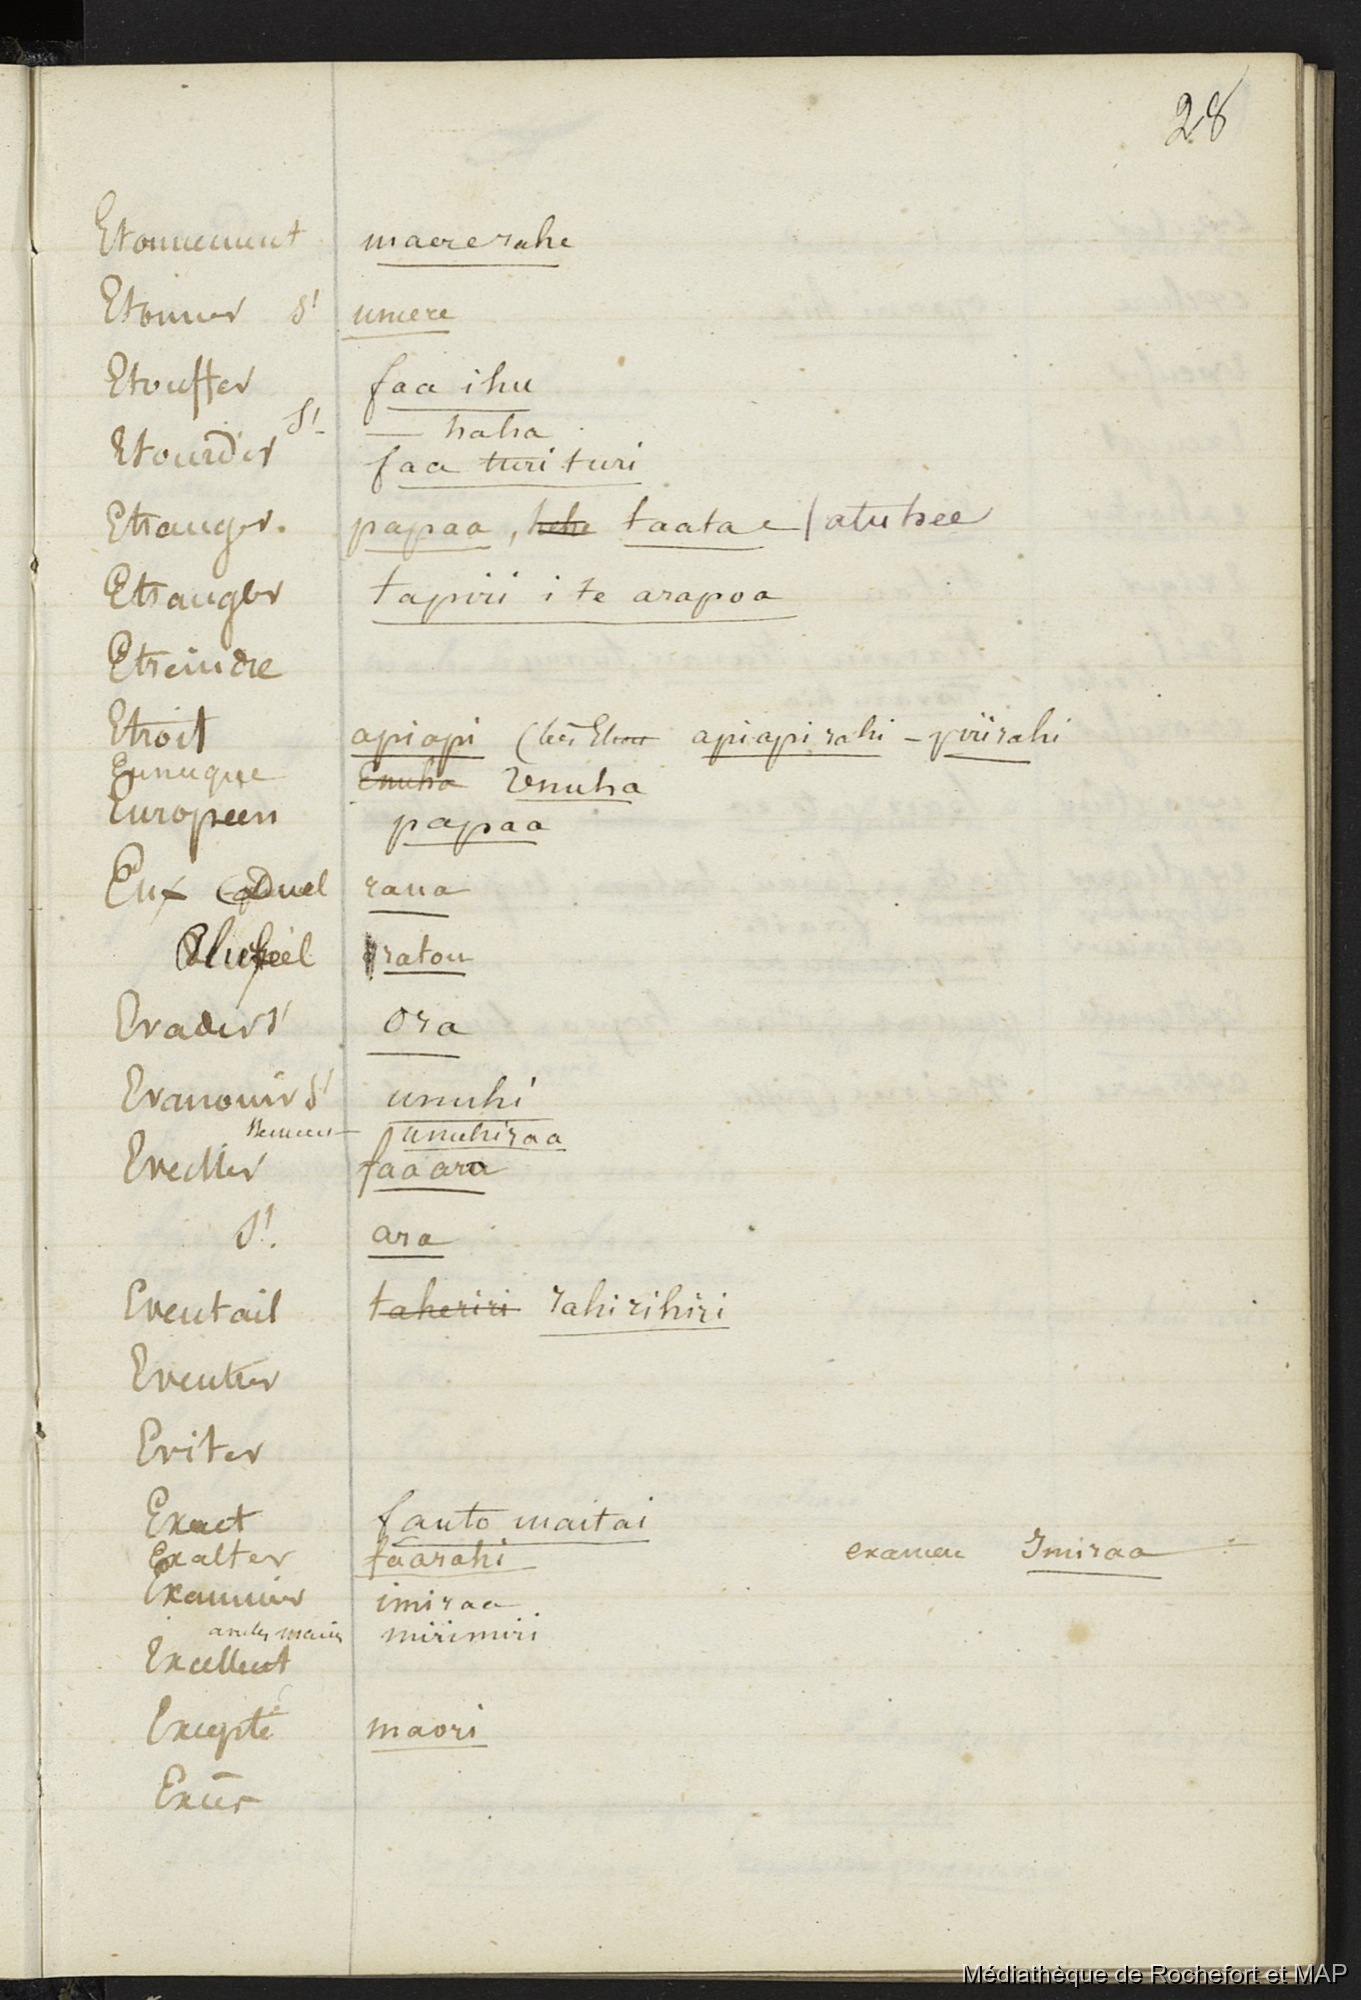 28
Etonnement maererahe
Etonner S' umere
Etouffer faa ihu
S' — haha
Etourdir faa turituri
Etranger. papaa, hehe taatae / atuhee
Etrangler tapiri i te arapoa
Etreindre
Etroit apiapi (très Etroit apiapirahi - piirahi
Eunuque Enuha Enuha
Européen papaa
Eux Duel raua
Pluriel ratou
Evader S' Ora
Evanouir S' unuhi
unuhiraa
Eveiller faaara
S'. ara
Eventail taheriri rahirihiri
Eventrer
Eviter
Exact fauto maitai
Exalter faarahi examen Imiraa
Examiner imiraa
avec les mains mirimiri
Excellent
Excepté maori
Médiathèque de Rochefort et MAP